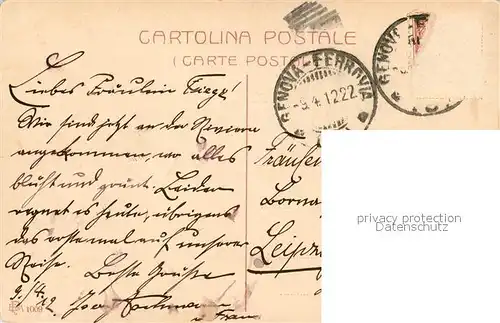 CARTOLINA POSTALE
(CARTE POSTA
GENOVA-FERROVIA
-9.4.12 22
GENOVA
Liebes Fräulein
Wir sind jetzt an der Riviera
angekommen, wo alles
blüht und grünt. Leider
regnet es heute, übrigens
das erste mal auf unserer
Reise. Beste Grüße
9./4.
12.
u Frau
1009
Fräulein
Borna
Leipzi
privacy protection
Datenschutz